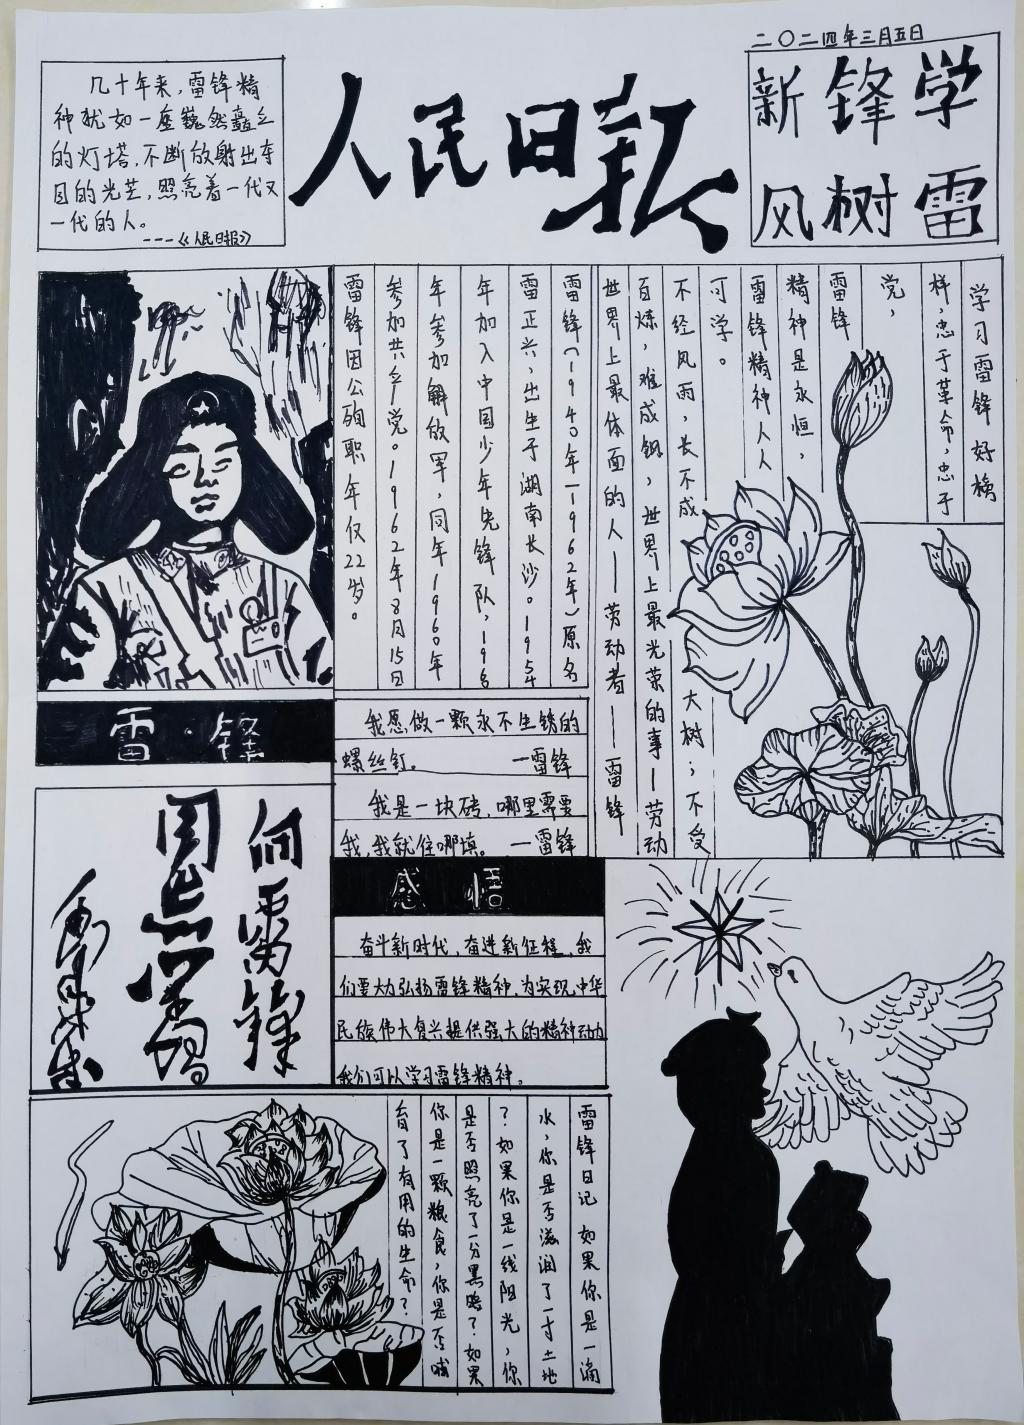 二〇二四年三月五日
几十年来，雷锋精
神犹如一座巍然矗立
的灯塔，不断放射出夺
目的光芒，照亮着一代又
一代的人。
---《人民日报》
人民日报
学雷
锋树
新风
学习雷锋好榜
样，忠于革命，忠于
党，
雷锋
精神是永恒，
雷锋精神人人
可学。
不经风雨，长不成大树；不受
百炼，难成钢，世界上最光荣的事—劳动
世界上最体面的人——劳动者——雷锋
雷锋（1940年—1962年）原名
雷正兴，出生于湖南长沙。1954
年加入中国少年先锋队，196
年参加解放军，同年1960年
参加共产党。1962年8月15日
雷锋因公殉职年仅22岁。
雷·锋
我愿做一颗永不生锈的
螺丝钉。 —雷锋
我是一块砖，哪里需要
我，我就往哪填。 —雷锋
向雷锋
同志学习
毛泽东
感悟
奋斗新时代，奋进新征程，我
们要大力弘扬雷锋精神，为实现中华
民族伟大复兴提供强大的精神动力
我们可以学习雷锋精神。
雷锋日记 如果你是一滴
水，你是否滋润了一寸土地
？如果你是一线阳光，你
是否照亮了一分黑暗？如果
你是一颗粮食，你是否哺
育了有用的生命？